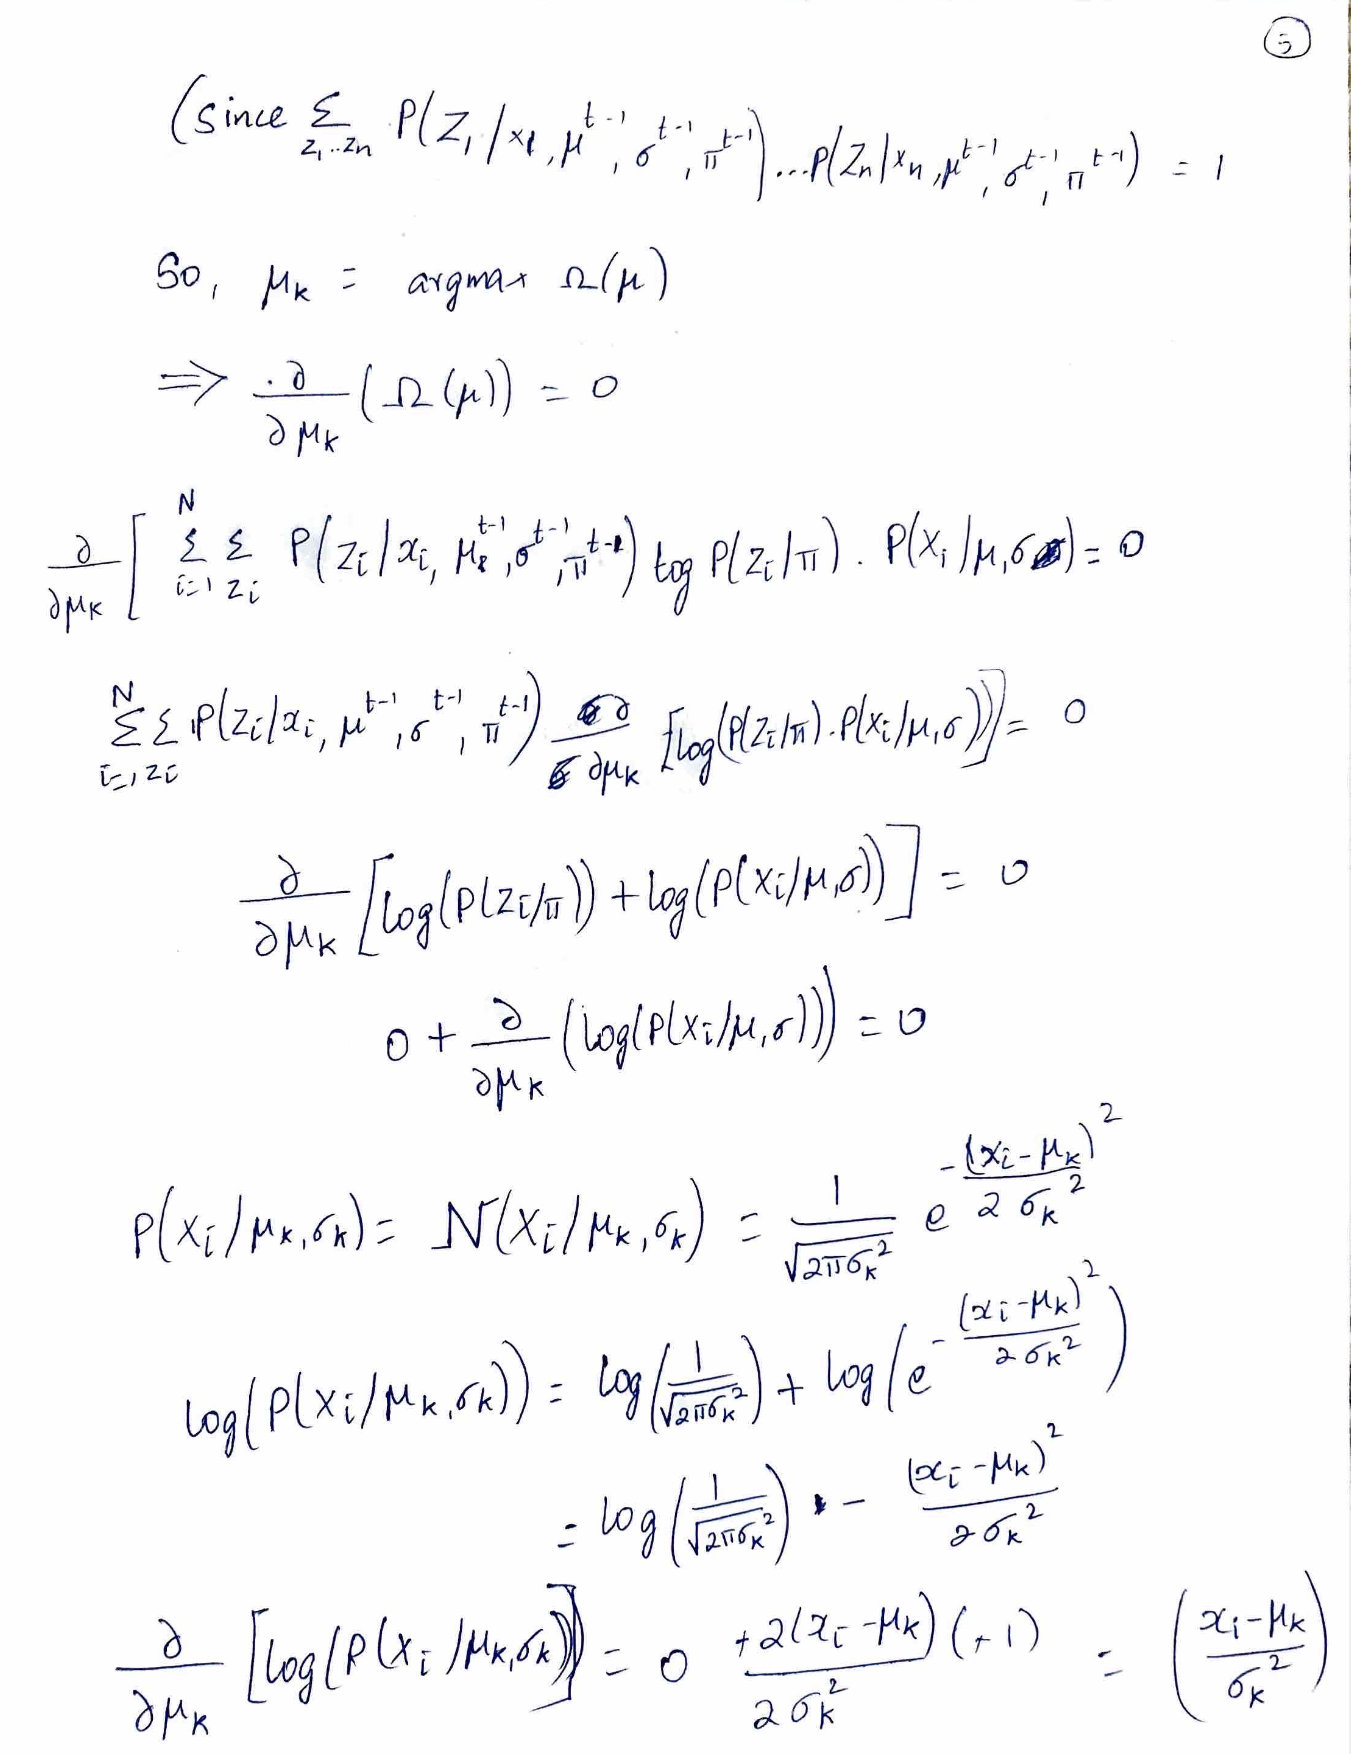 5
(since Σ_{z₁..zₙ} P(Z₁/x₁, μ^{t-1}, σ^{t-1}, π^{t-1}) ... P(Zₙ/xₙ, μ^{t-1}, σ^{t-1}, π^{t-1}) = 1
So, μ_k = argmax Ω(μ)
⇒ ∂/∂μ_k (Ω(μ)) = 0
∂/∂μ_k [ Σ_{i=1}^{N} Σ_{z_i} P(z_i/x_i, μ^{t-1}, σ^{t-1}, π^{t-1}) log P(z_i/π) . P(x_i/μ,σ) = 0
Σ_{i=1}^{N} Σ_{z_i} P(z_i/x_i, μ^{t-1}, σ^{t-1}, π^{t-1}) ∂/∂μ_k [log(P(z_i/π) . P(x_i/μ,σ))] = 0
∂/∂μ_k [log(P(z_i/π)) + log(P(x_i/μ,σ))] = 0
0 + ∂/∂μ_k (log(P(x_i/μ,σ))) = 0
P(x_i/μ_k,σ_k) = N(x_i/μ_k,σ_k) = 1/√(2πσ_k²) e^{-(x_i-μ_k)²/2σ_k²}
log(P(x_i/μ_k,σ_k)) = log(1/√(2πσ_k²)) + log(e^{-(x_i-μ_k)²/2σ_k²})
= log(1/√(2πσ_k²)) - (x_i-μ_k)²/2σ_k²
∂/∂μ_k [log(P(x_i/μ_k,σ_k))] = 0 +2(x_i-μ_k)(+1)/2σ_k² = ((x_i-μ_k)/σ_k²)